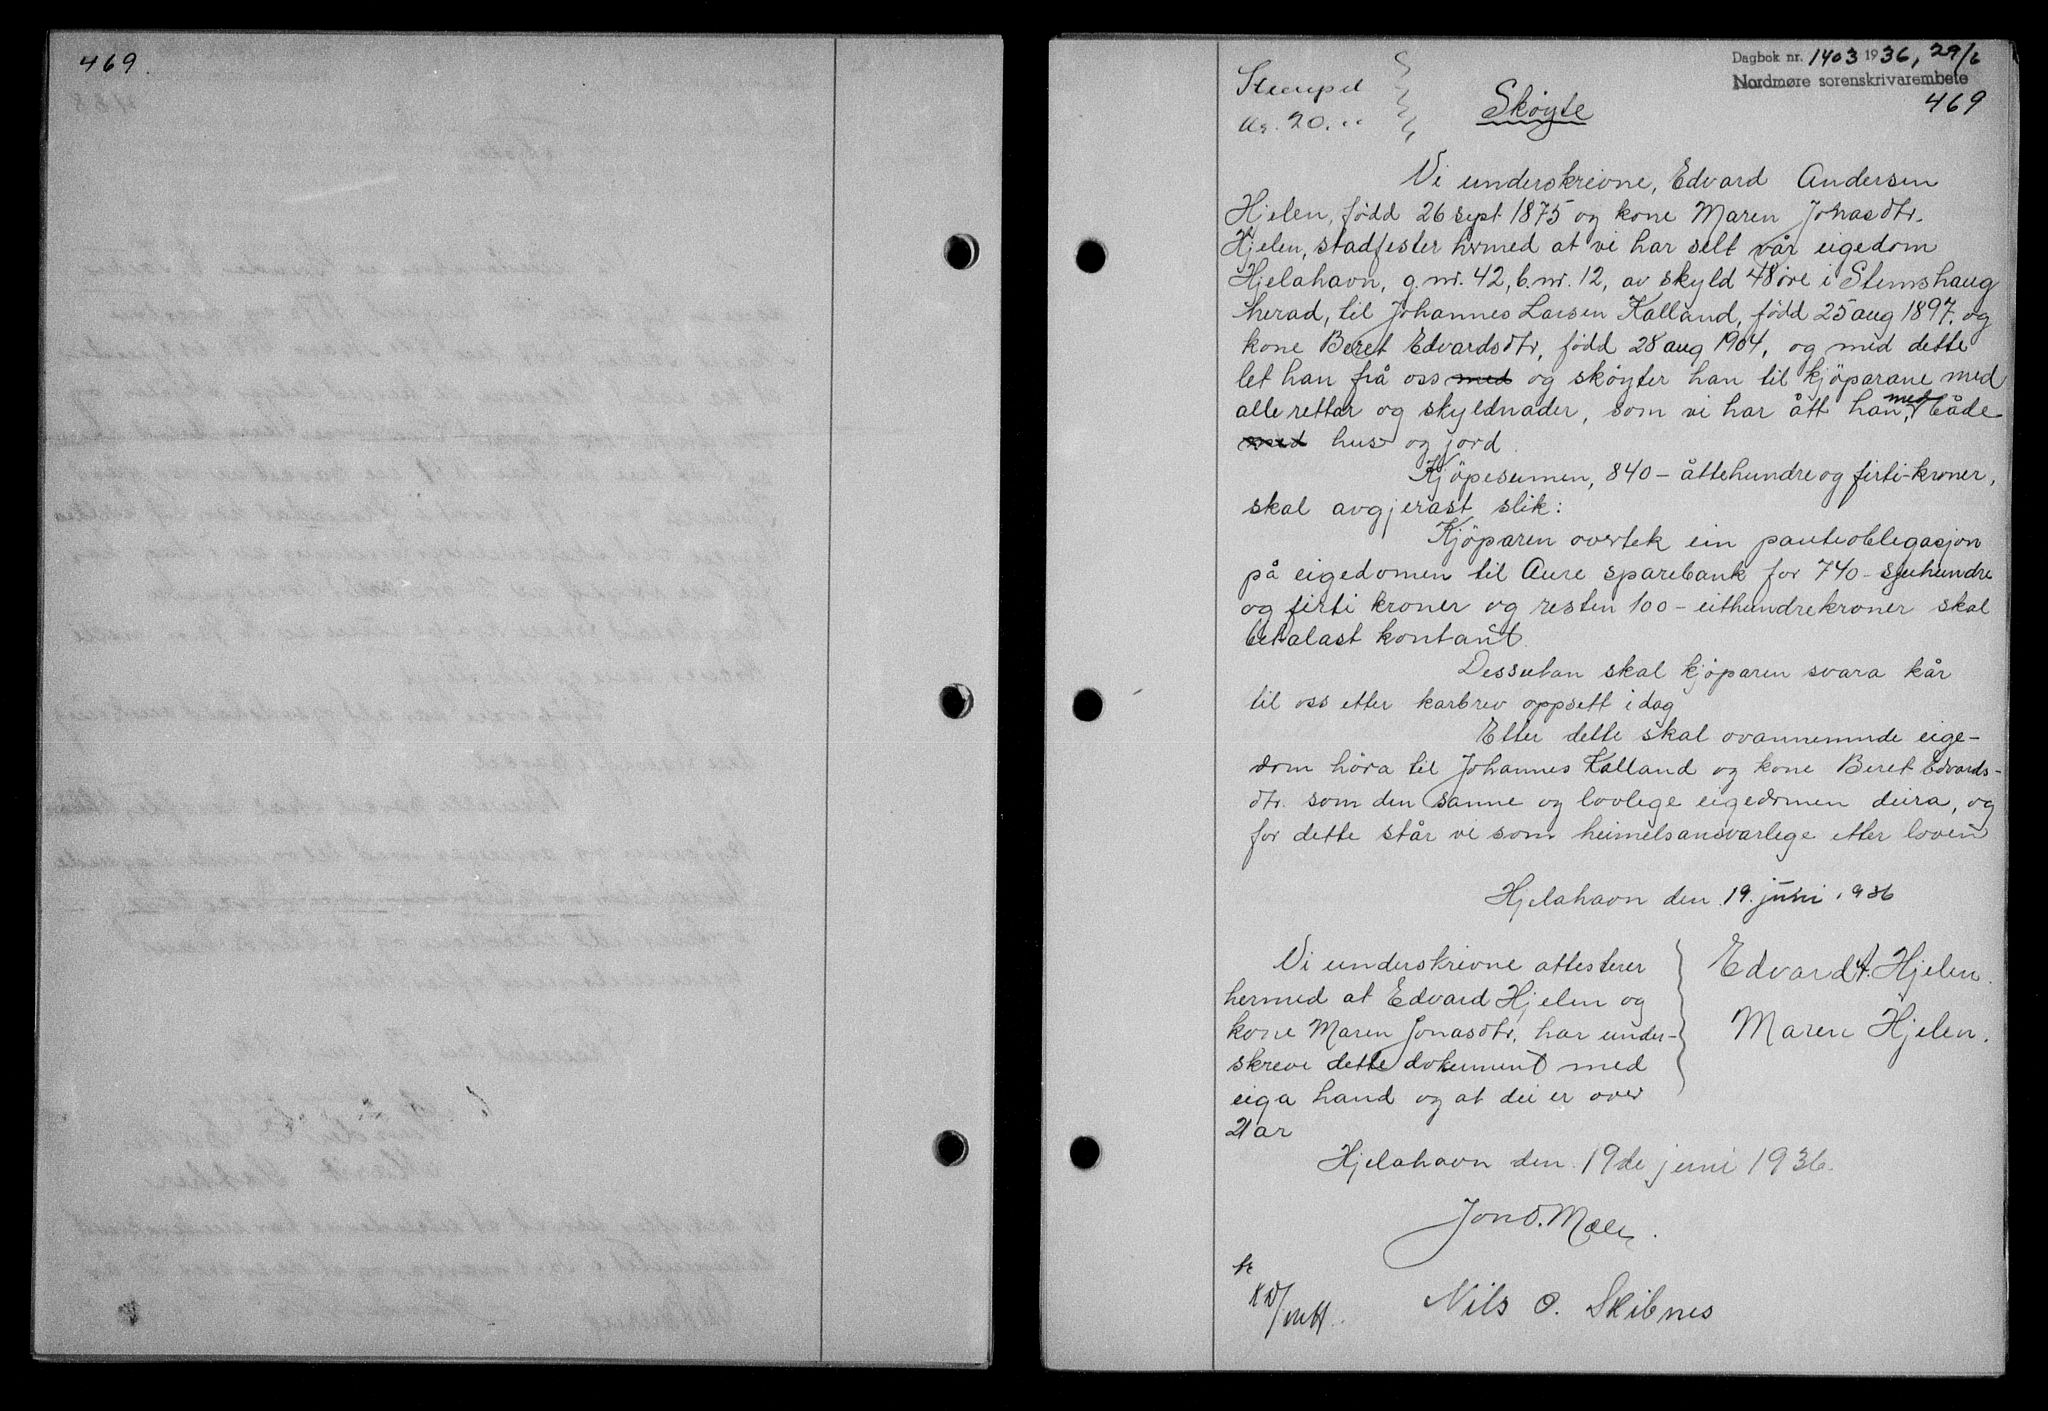 469.
Dagbok nr. 1403 1936, 29/6
Nordmøre sorenskrivarembete
469
Stempel
kr. 20.
Skøyte
Vi underskrevne, Edvard Andersen
Hjelen, född 26 sept 1875 og kone Maren Jonasdtr.
Hjelen, stadfester hermed at vi har selt vår eigedom
Hjelahavn, g.nr. 42, b.nr. 12, av skyld 48 öre i Stemshaug
herad, til Johannes Larsen Kalland, född 25 aug 1897, og
kone Beret Edvardsdtr, född 28 aug 1904, og med dette
let han frå oss med og sköyter han til kjöparane med
alle rettar og skyldnader, som vi har ått han, med både
med hus og jord.
Kjöpesumen, 840 - åttehundre og firti-kroner,
skal avgjerast slik:
Kjöparen overtek ein panteobligasjon
på eigedomen til Aure sparebank for 740 - sjuhundre
og firti kroner og resten 100 - eithundrekroner skal
betalast kontant.
Dessutan skal kjöparen svara kår
til oss etter karbrev oppsett i dag
Etter dette skal ovannemnde eige-
dom höra til Johannes Kalland og kone Beret Edvards-
dtr. som den sanne og lovlege eigedomen deira, og
for dette står vi som heimelsansvarlege etter loven
Hjelahavn den 19. juni 1936
Vi underskrevne attesterer
hermed at Edvard Hjelen og
kone Maren Jonasdtr, har under-
skreve dette dokument med
eiga hand og at dei er over
21 ar
Edvard A. Hjelen.
Maren Hjelen.
Hjelahavn den 19de juni 1936.
Jon O. Mæle.
Nils O. Skibnes